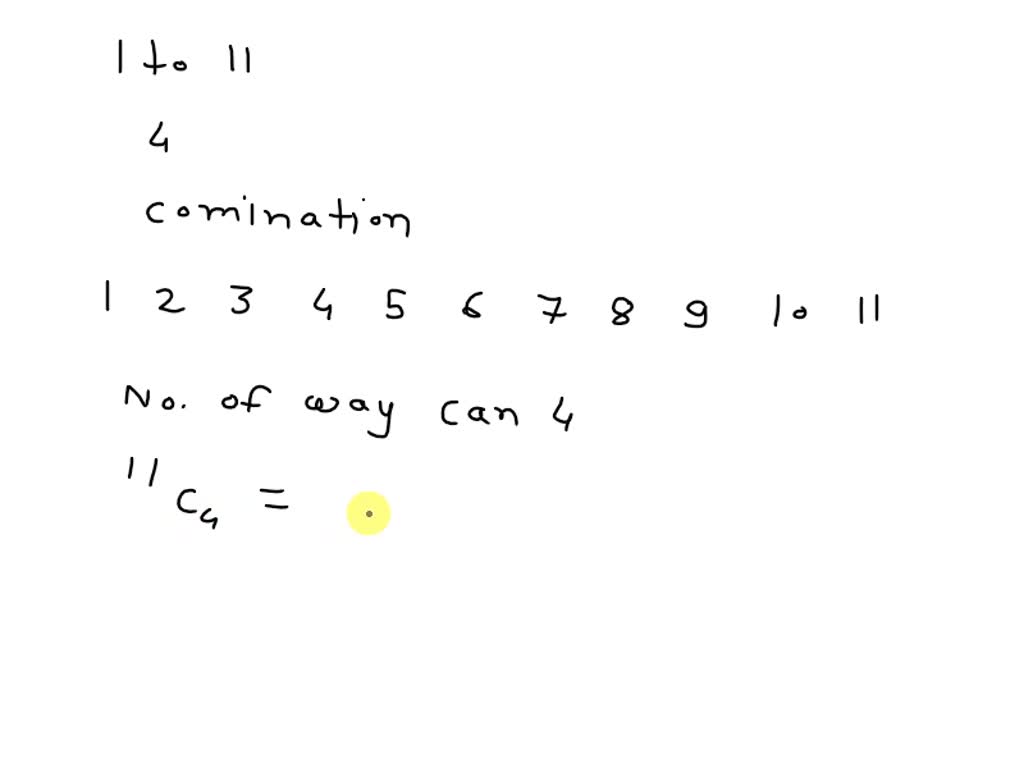 1 to 11
4
comination
1 2 3 4 5 6 7 8 9 10 11
No. of way can 4
¹¹C₄ =